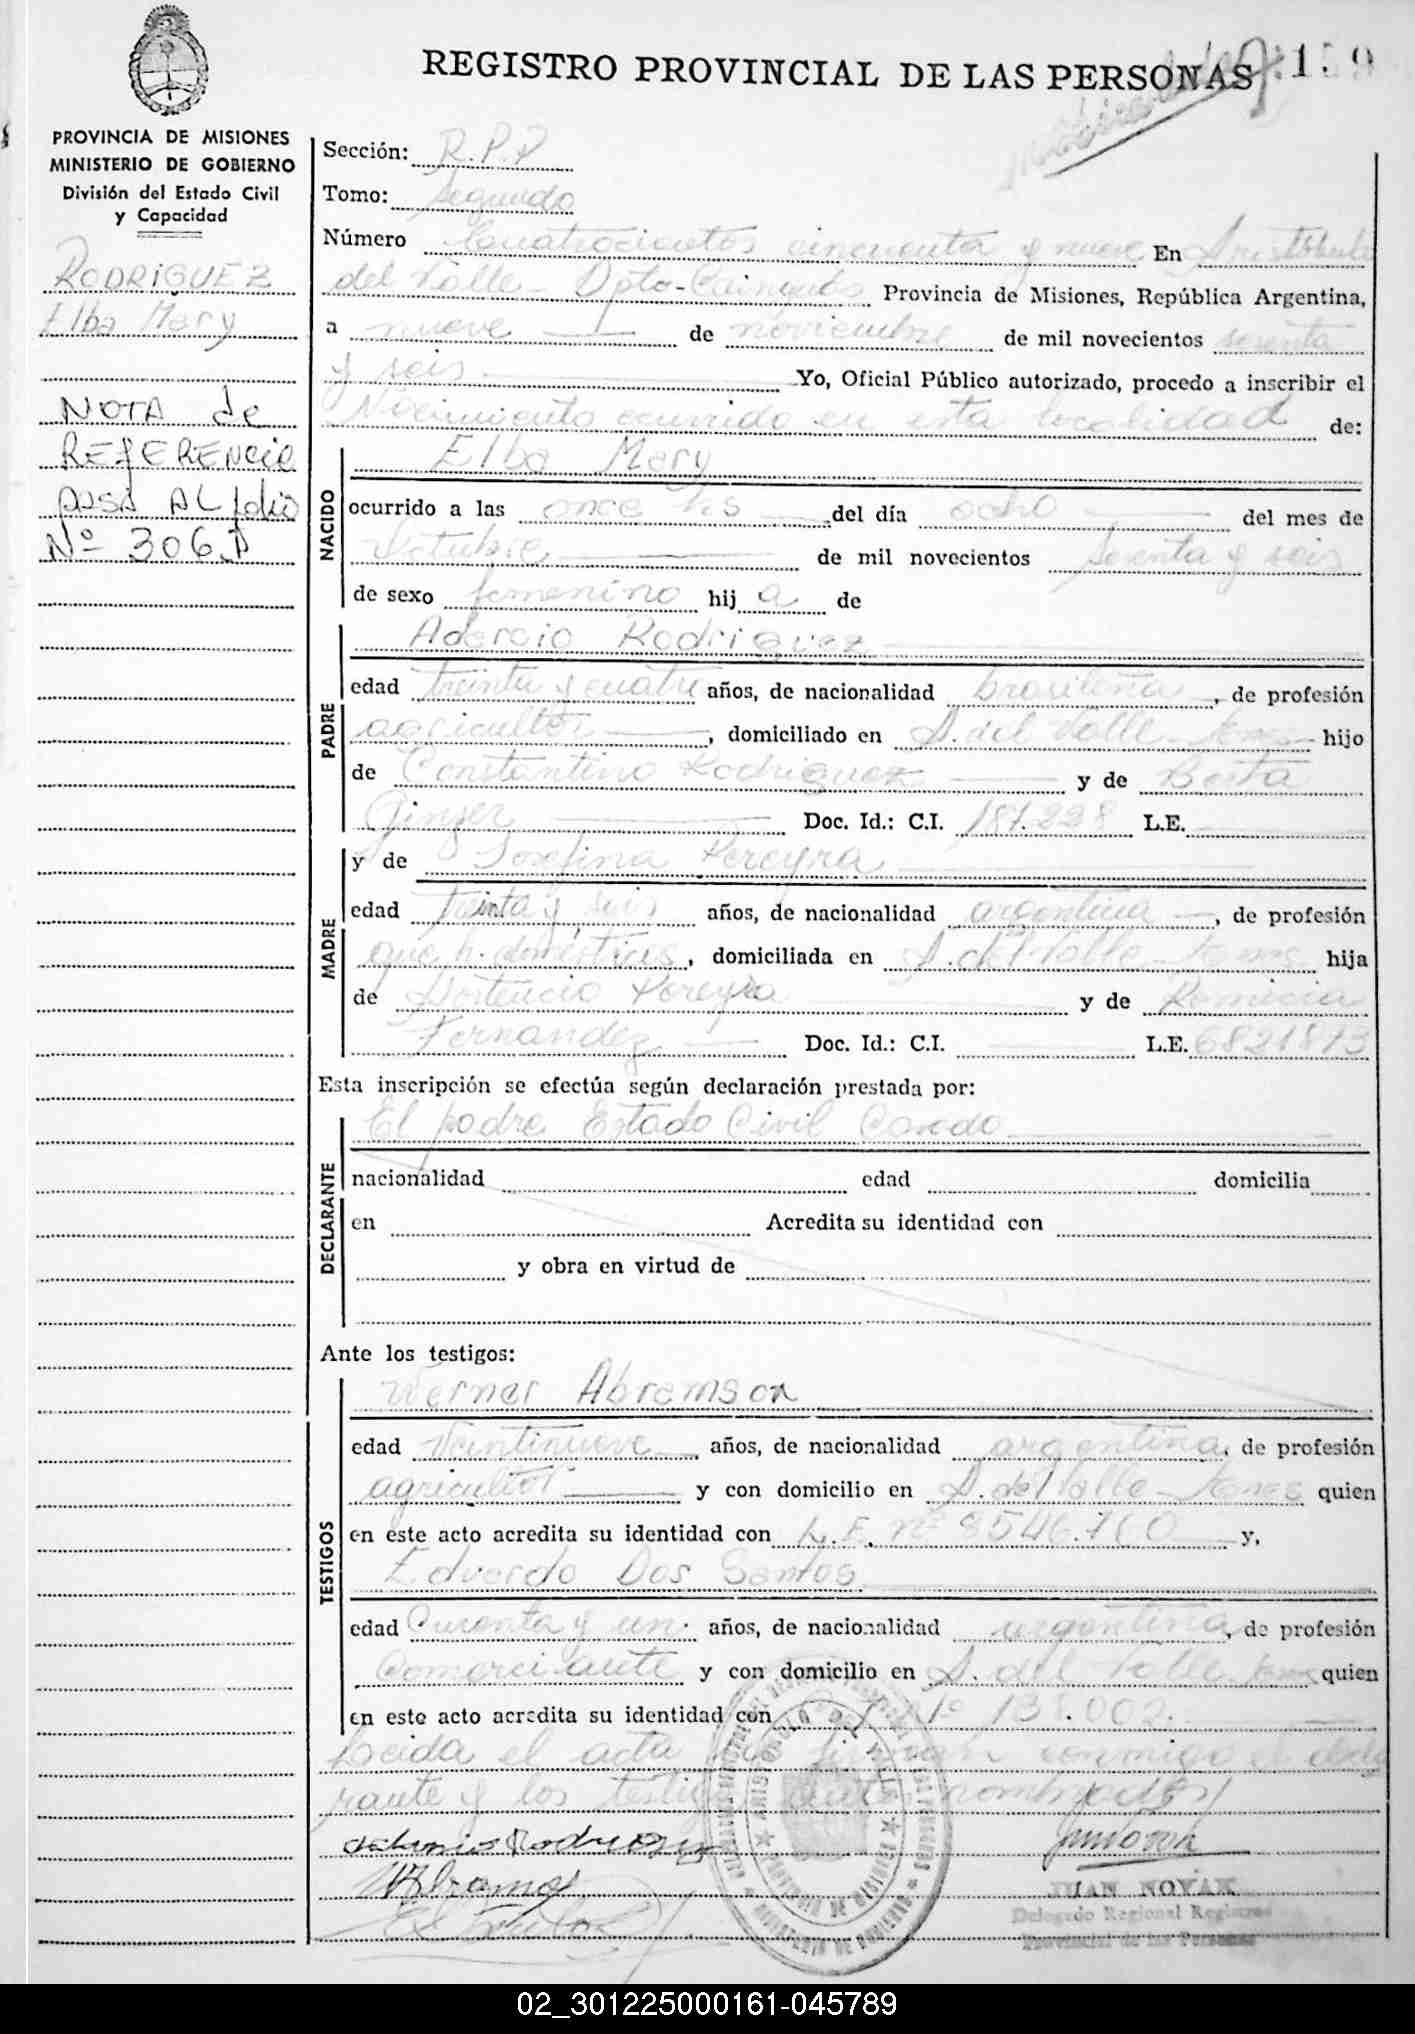 REGISTRO PROVINCIAL DE LAS PERSONAS
PROVINCIA DE MISIONES
MINISTERIO DE GOBIERNO
División del Estado Civil
y Capacidad
RODRIGUEZ
Elba Mery
NOTA de
REFERENCIA
pasa AL folio
Nº 306
Sección: R.P.P
Tomo: Segundo
Número Cuatrocientos cincuenta y nueve En Aristóbulo
del Valle - Dpto - Cainguás Provincia de Misiones, República Argentina,
a nueve de noviembre de mil novecientos sesenta
y seis Yo, Oficial Público autorizado, procedo a inscribir el
Nacimiento ocurrido en esta localidad de:
NACIDO
Elba Mery
ocurrido a las once hs del día ocho del mes de
Octubre de mil novecientos sesenta y seis
de sexo femenino hija de
PADRE
Rodriguez
edad treinta y cuatro años, de nacionalidad brasileña, de profesión
agricultor, domiciliado en A. del Valle hijo
de Constantino Rodriguez y de Berta
Doc. Id.: C.I. 187.228 L.E.
MADRE
y de Josefina Pereyra
edad treinta y seis años, de nacionalidad argentina, de profesión
que h. domésticos, domiciliada en A. del Valle hija
de Pereyra y de
Fernandez Doc. Id.: C.I. L.E. 6821813
Esta inscripción se efectúa según declaración prestada por:
DECLARANTE
El padre Estado Civil Casado
nacionalidad edad domicilia
en Acredita su identidad con
y obra en virtud de
Ante los testigos:
TESTIGOS
Werner Abramson
edad Veintinueve años, de nacionalidad argentina, de profesión
agricultor y con domicilio en A. del Valle quien
en este acto acredita su identidad con L.E. nº y,
Eduardo Dos Santos
edad Curenta y un años, de nacionalidad argentina, de profesión
Comerciante y con domicilio en A. del Valle quien
en este acto acredita su identidad con Nº 138.002.
Leida el acta conmigo el decla
rante y los testigos nombrados
Rodriguez
JUAN NOVAK
Delegado Regional Registro
Provincial de las Personas
02_301225000161-045789